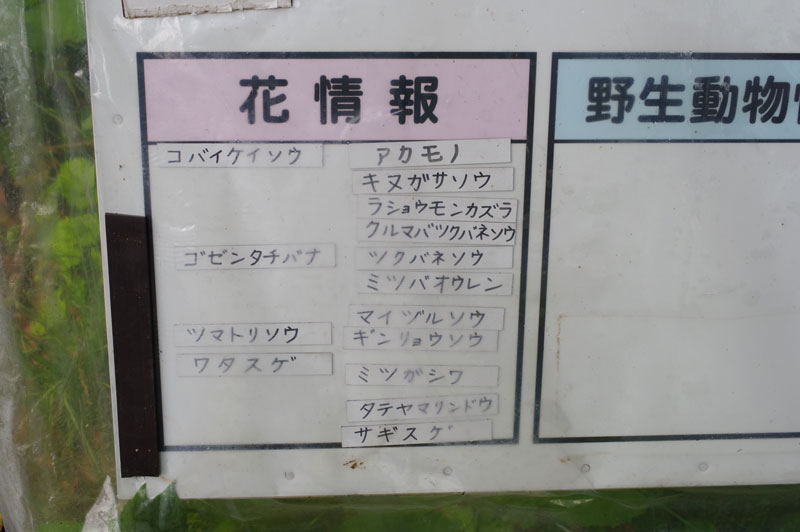 花情報
コバイケイソウ
ゴゼンタチバナ
ツマトリソウ
ワタスゲ
アカモノ
キヌガサソウ
ラショウモンカズラ
クルマバツクバネソウ
ツクバネソウ
ミツバオウレン
マイヅルソウ
ギンリョウソウ
ミツガシワ
タテヤマリンドウ
サギスゲ
野生動物